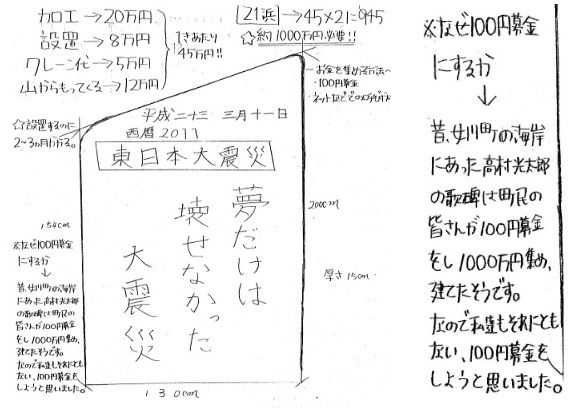 カロエ→20万円
設置→8万円
クレーン代→5万円
山からもってくる→12万円
1きあたり
45万円!!
21浜→45×21=945
☆約1000万円必要!!
〜お金を集める方法〜
・100円募金
☆設置するのに
2~3ヵ月かかる。
平成二十三 三月十一日
西暦2011
東日本大震災
夢だけは
壊せなかった
大震災
154cm
200cm
厚さ15cm
130cm
※なぜ100円募金
にするか
↓
昔、女川町の海岸
にあった高村光太郎
の歌碑は町民の
皆さんが100円募金
をし1000万円集め、
建てたそうです。
なので私達もそれにとも
ない、100円募金を
しようと思いました。
※なぜ100円募金
にするか
↓
昔、女川町の、海岸
にあった高村光太郎
の歌碑は町民の
皆さんが100円募金
をし1000万円集め、
建てたそうです。
なので私達もそれにとも
ない、100円募金を
しようと思いました。